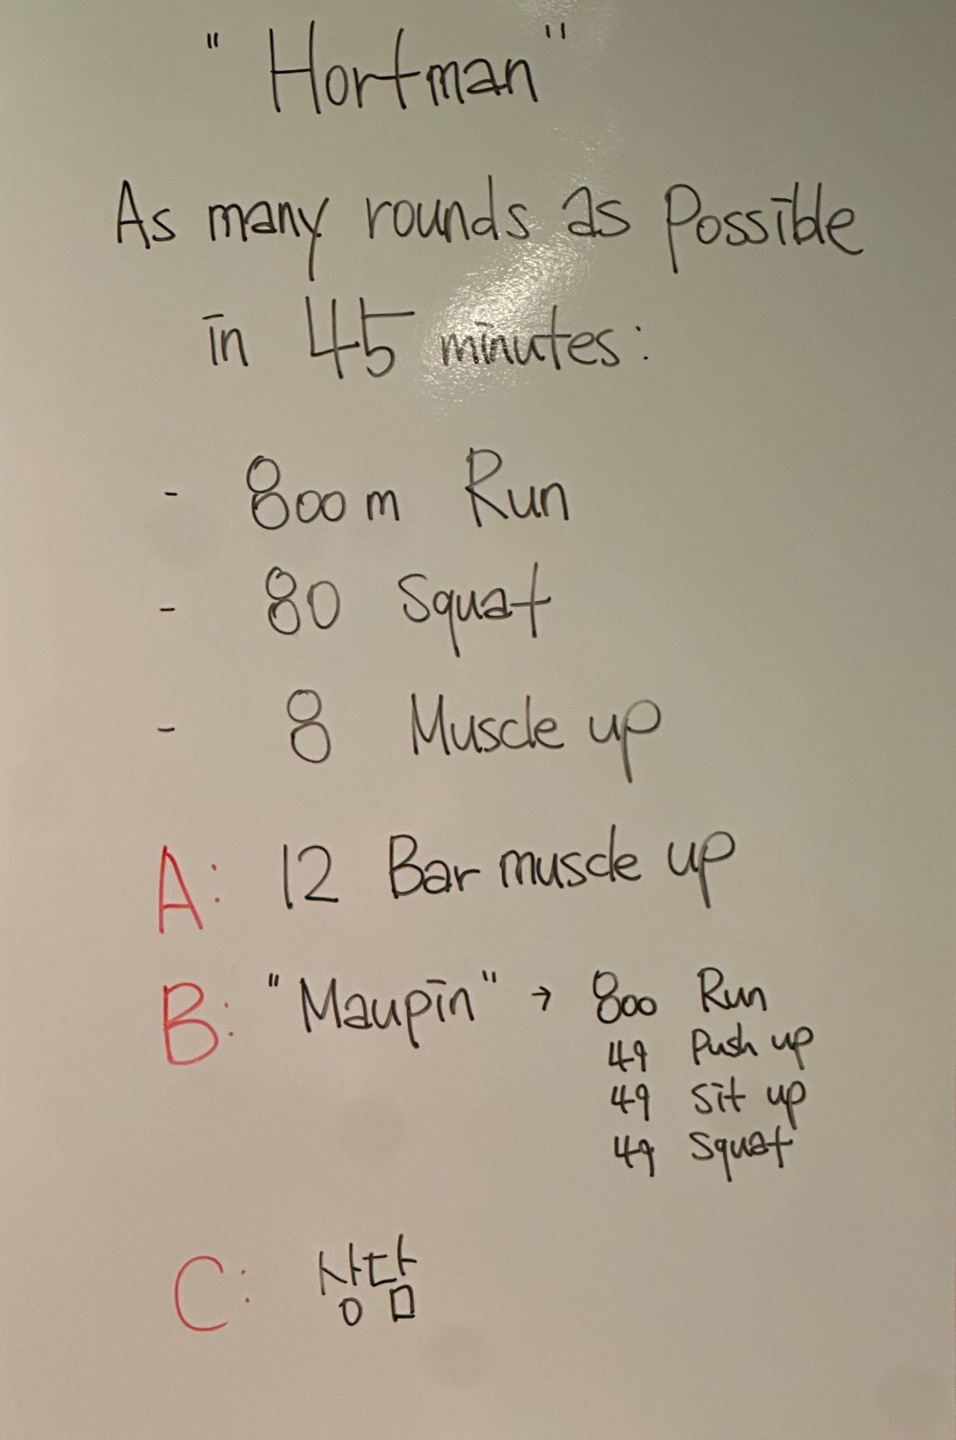 "Hortman"
As many rounds as possible
in 45 minutes:
- 800m Run
- 80 Squat
- 8 Muscle up
A: 12 Bar muscle up
B: "Maupin" → 800 Run
49 Push up
49 Sit up
49 Squat
C: 상담